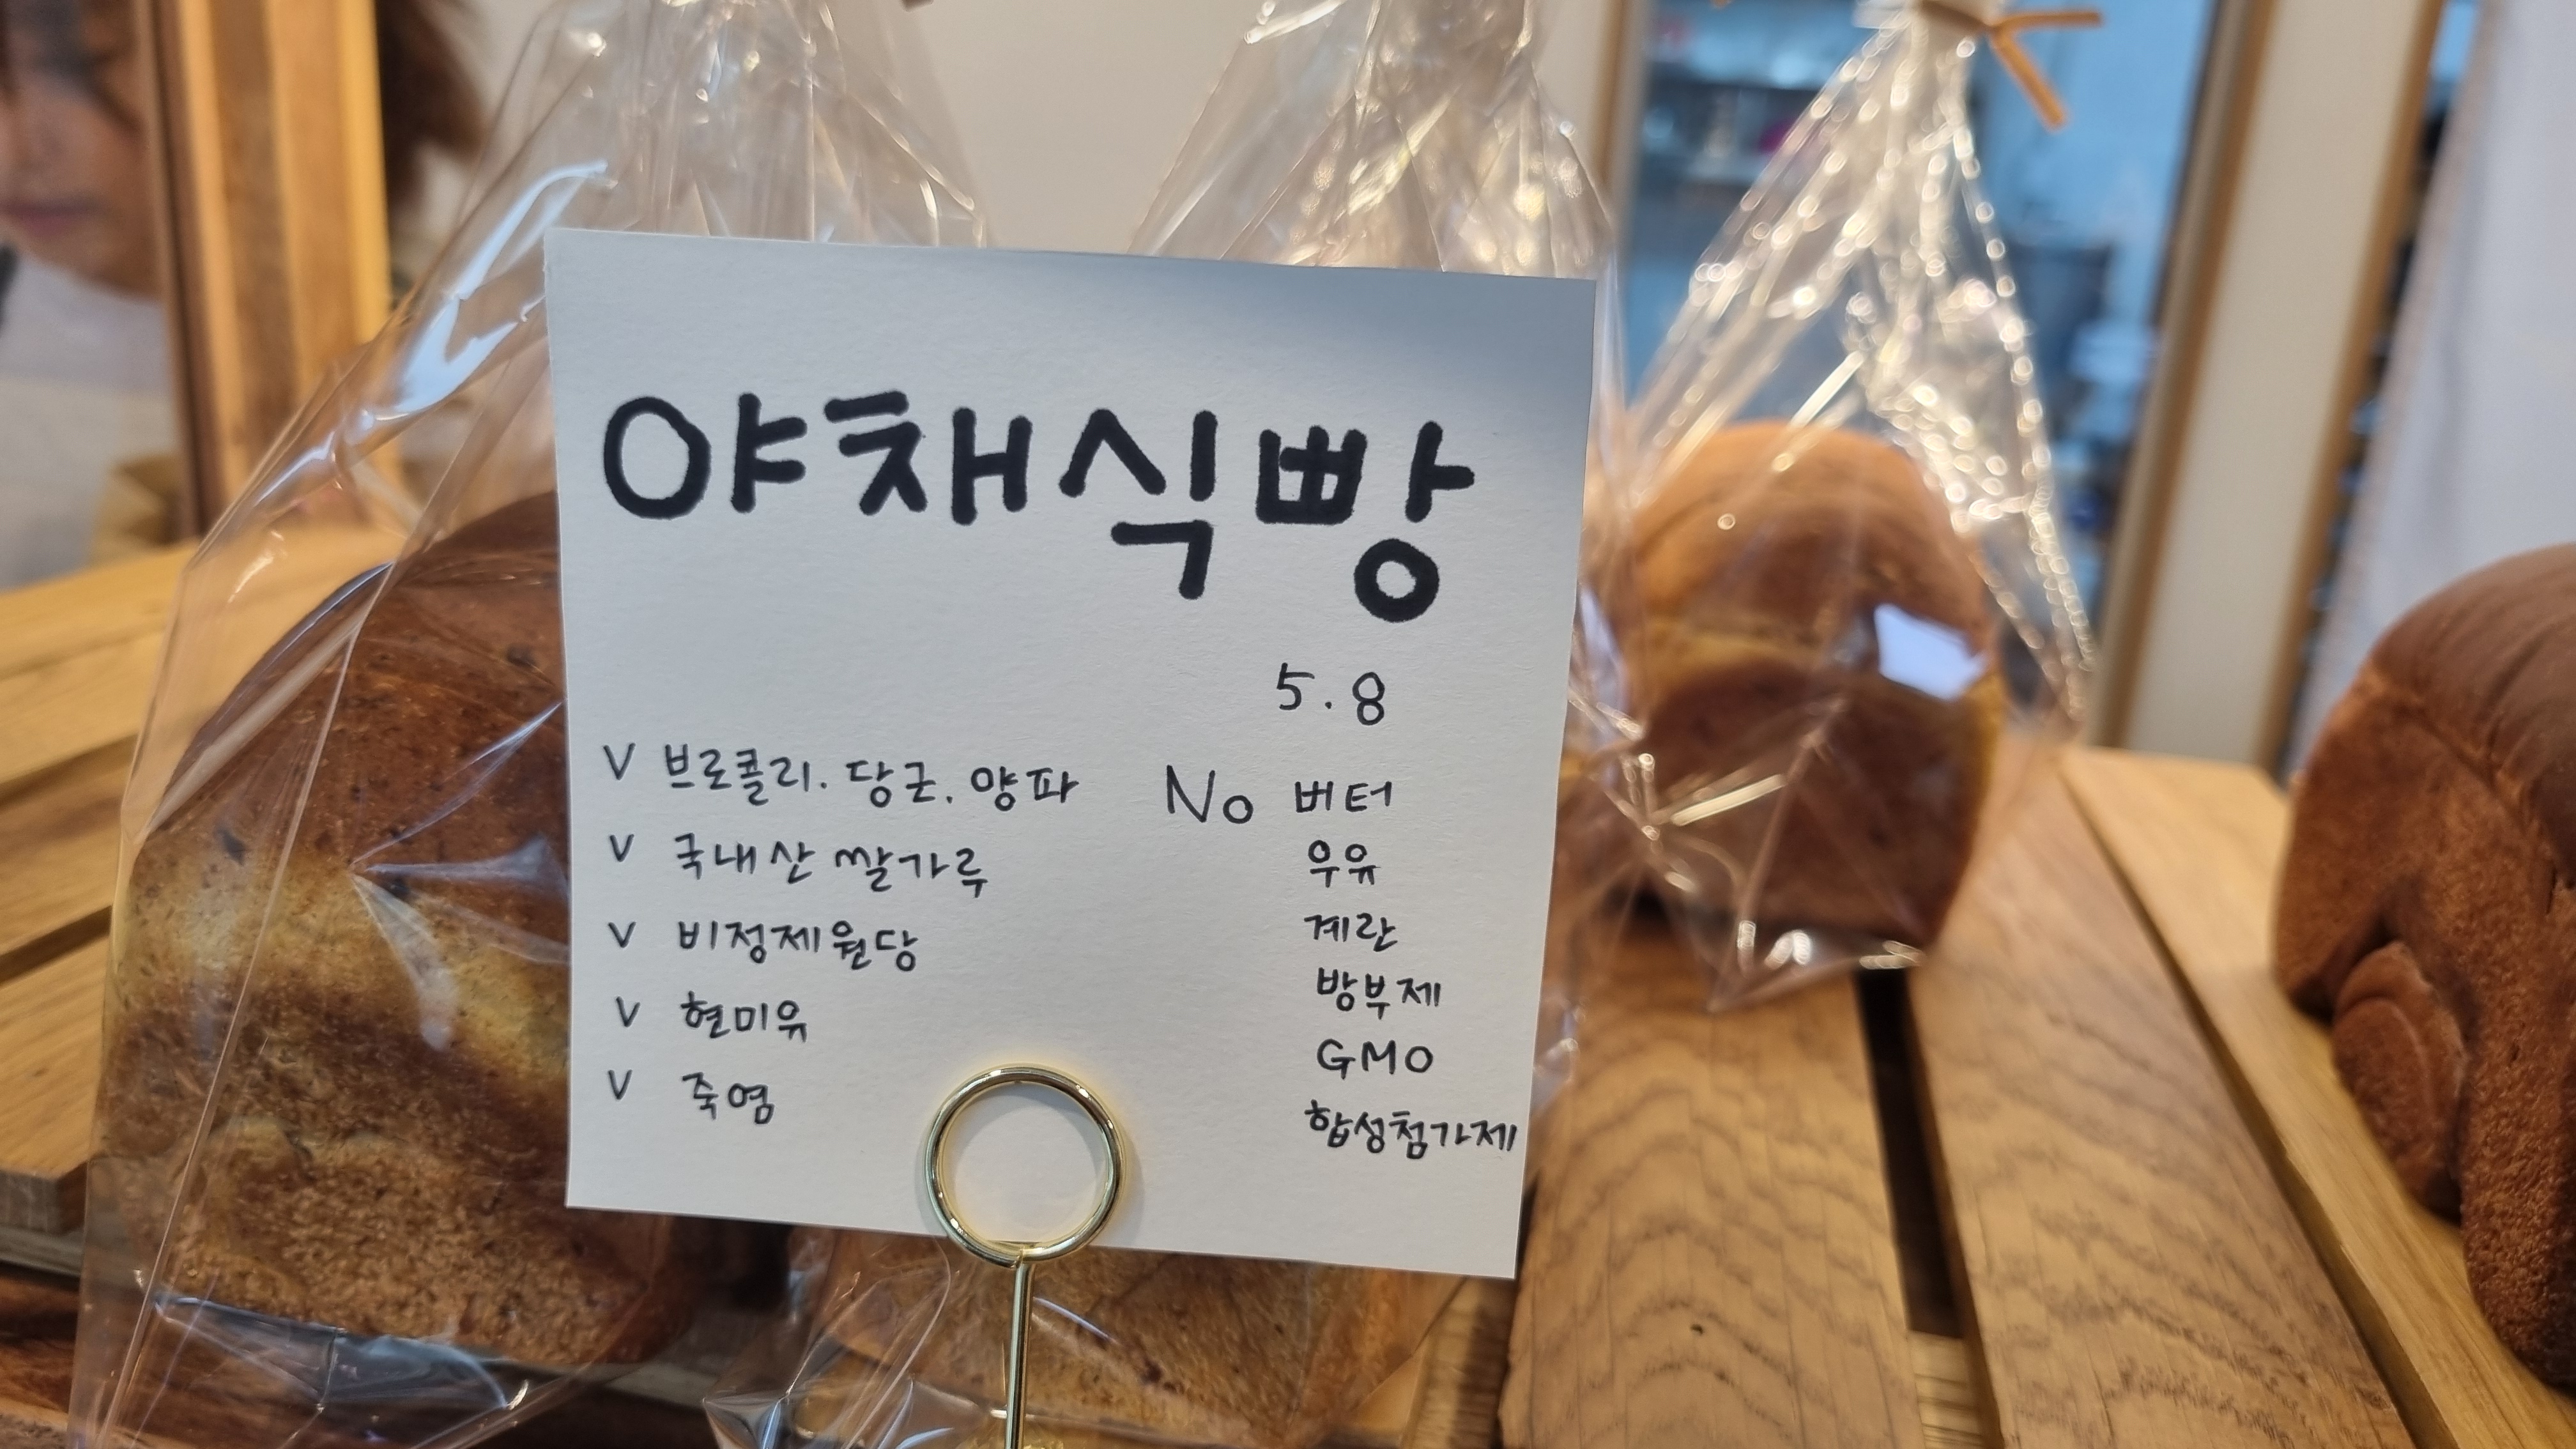 야채식빵
5.8
V 브로콜리. 당근. 양파
V 국내산 쌀가루
V 비정제원당
V 현미유
V 죽염
No 버터
우유
계란
방부제
GMO
합성첨가제